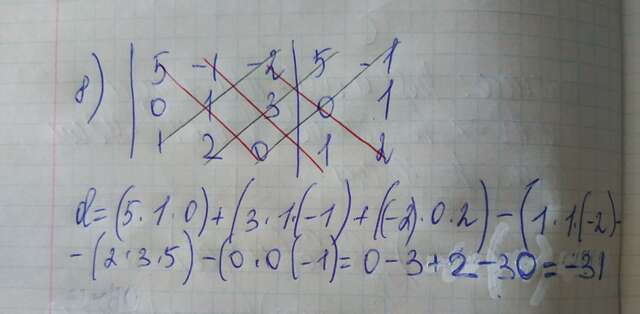 8) | 5 -1 -2 | 5 -1
0 1 3 | 0 1
1 2 0 | 1 2
d=(5·1·0)+(3·1·(-1)+((-2)·0·2)-(1·1·(-2)-
-(2·3·5)-(0·0(-1)=0-3+2-30=-31